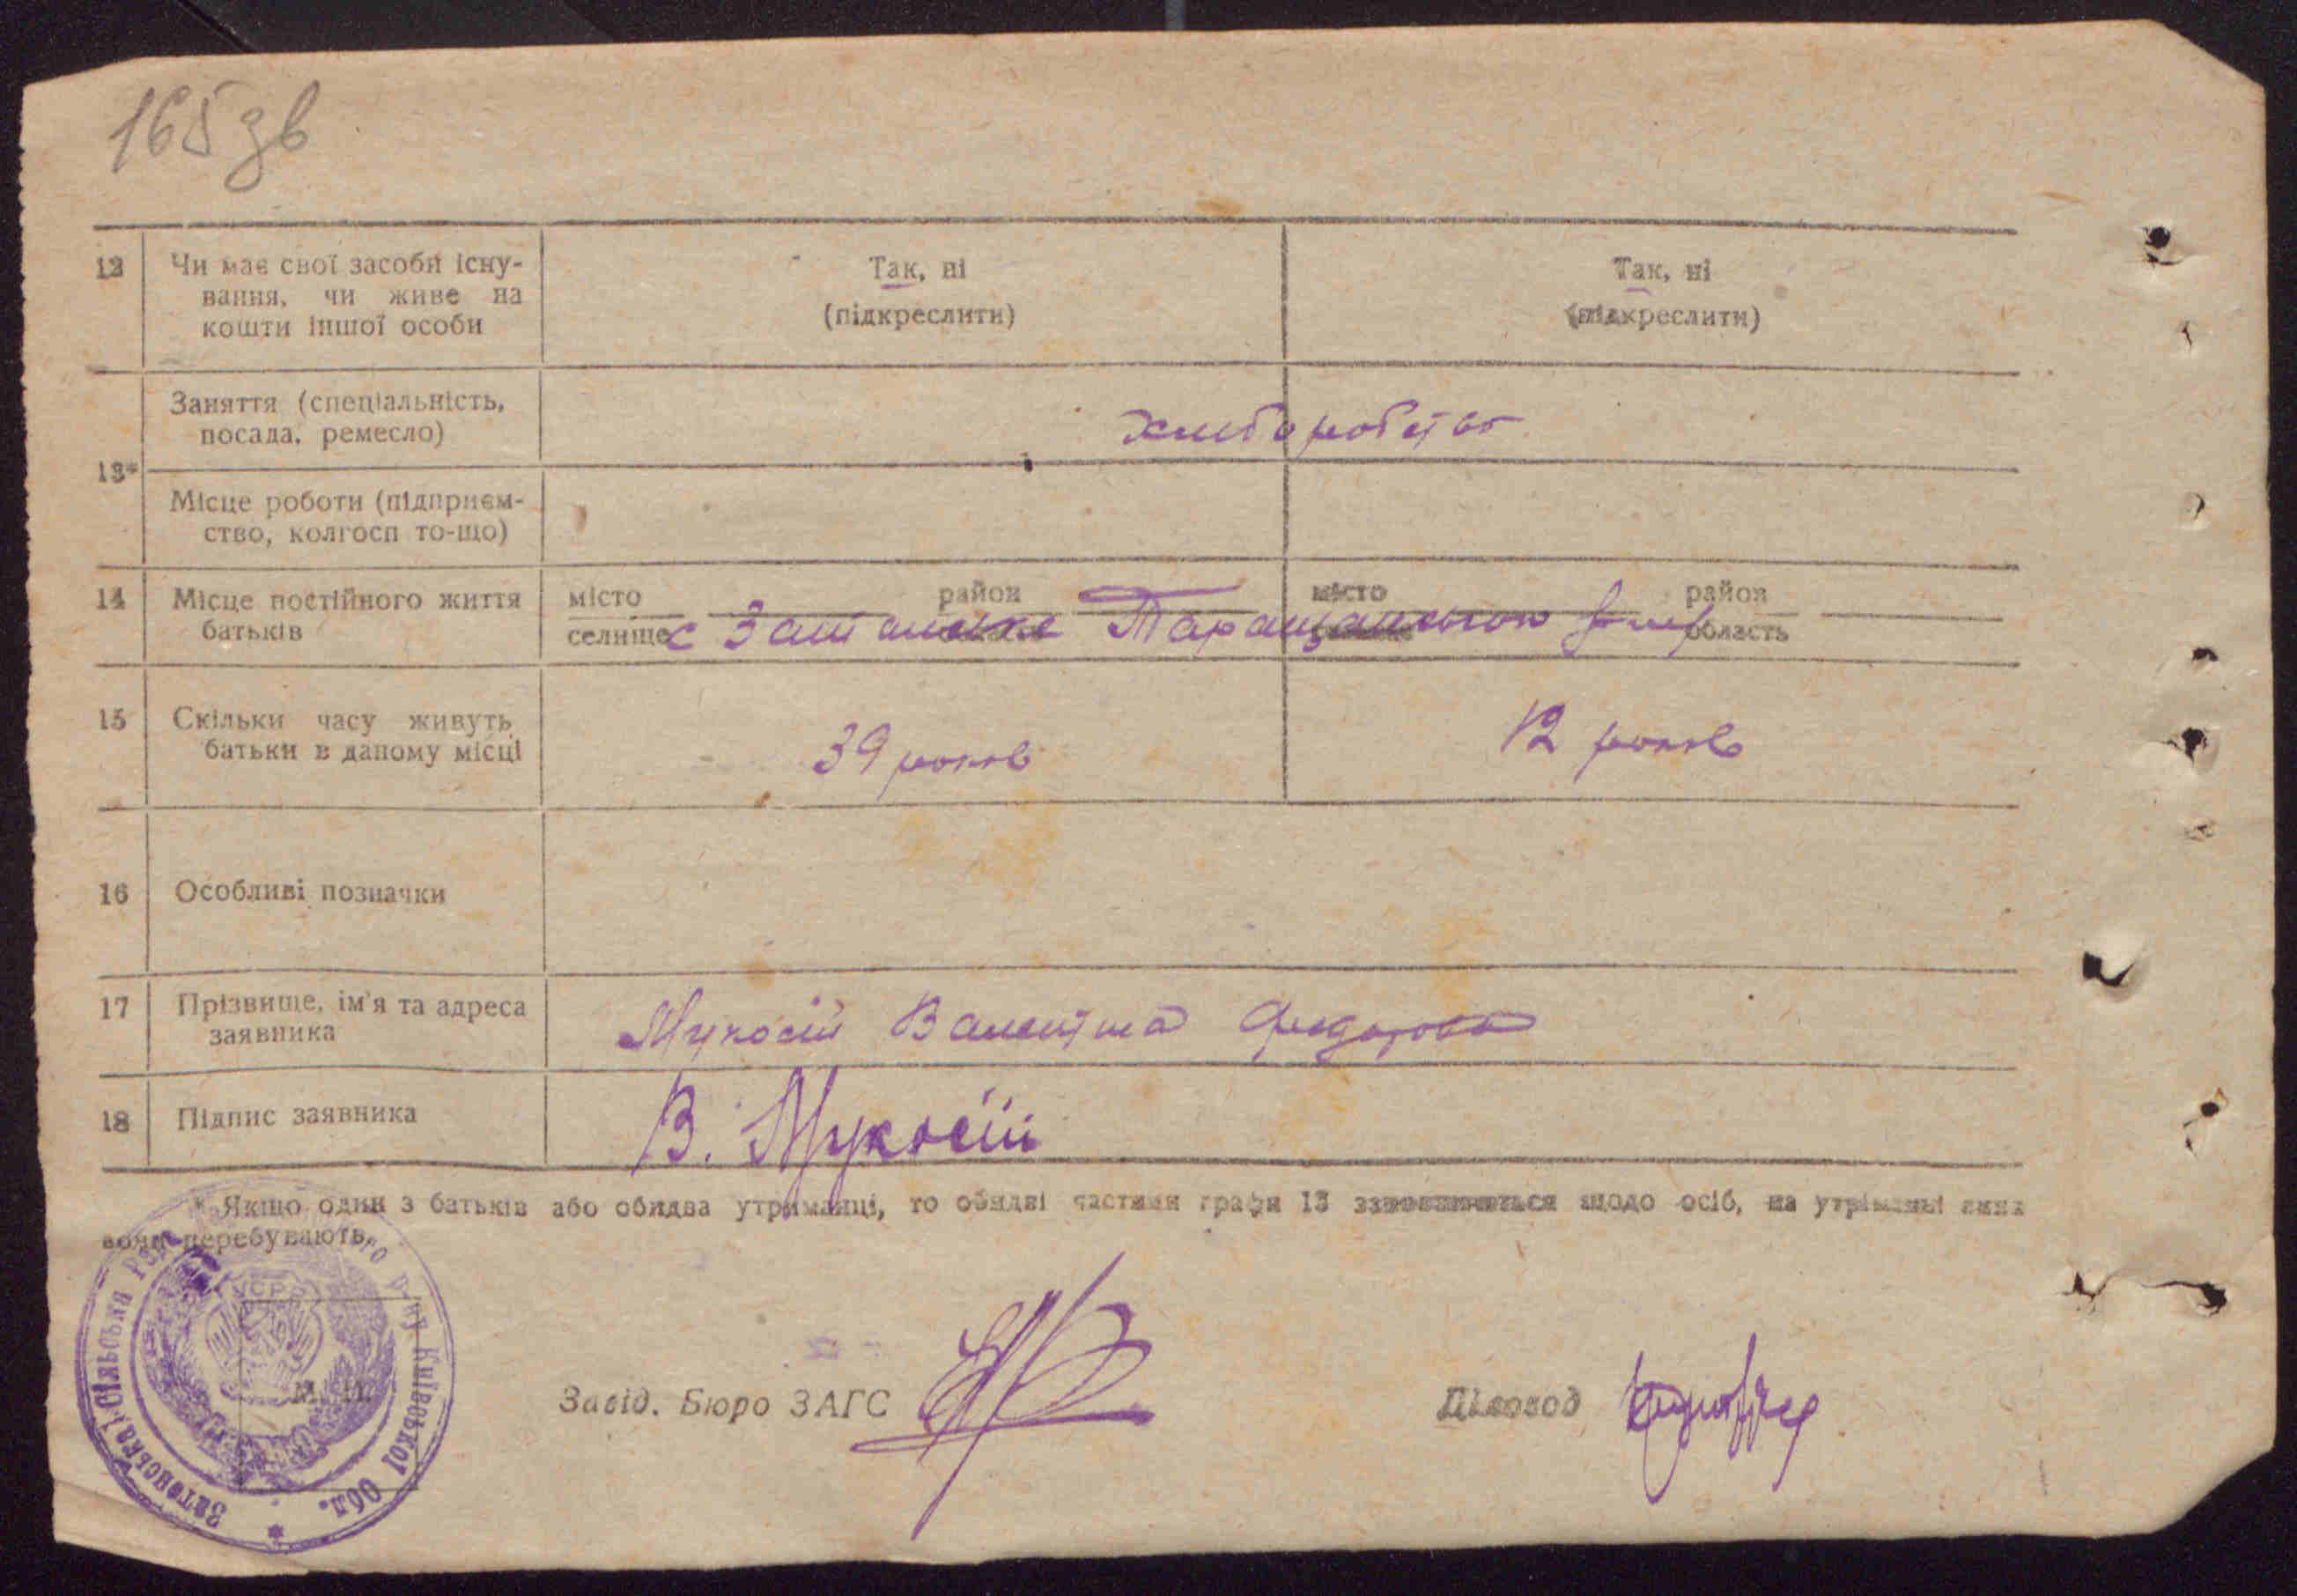 165 зв
12 Чи має свої засоби існу-
вання, чи живе на
кошти іншої особи
Так, ні
(підкреслити)
Так, ні
(підкреслити)
13*
Заняття (спеціальність,
посада, ремесло)
хліборобство
Місце роботи (підприєм-
ство, колгосп то-що)
14 Місце постійного життя
батьків
місто район місто район
селище с Таращанського область
15 Скільки часу живуть
батьки в даному місці
39 років 12 років
16 Особливі позначки
17 Прізвище, ім'я та адреса
заявника
Мукосій Валентина Федорова
18 Підпис заявника
В. Мукосій
* Якщо один з батьків або обидва утриманці, то обидві частини графи 13 заповнюються щодо осіб, на утриманні яких
вони перебувають.
УСРР
Сільська Рада Р-ну Київської Обл.
М. П.
Завід. Бюро ЗАГС
Діловод